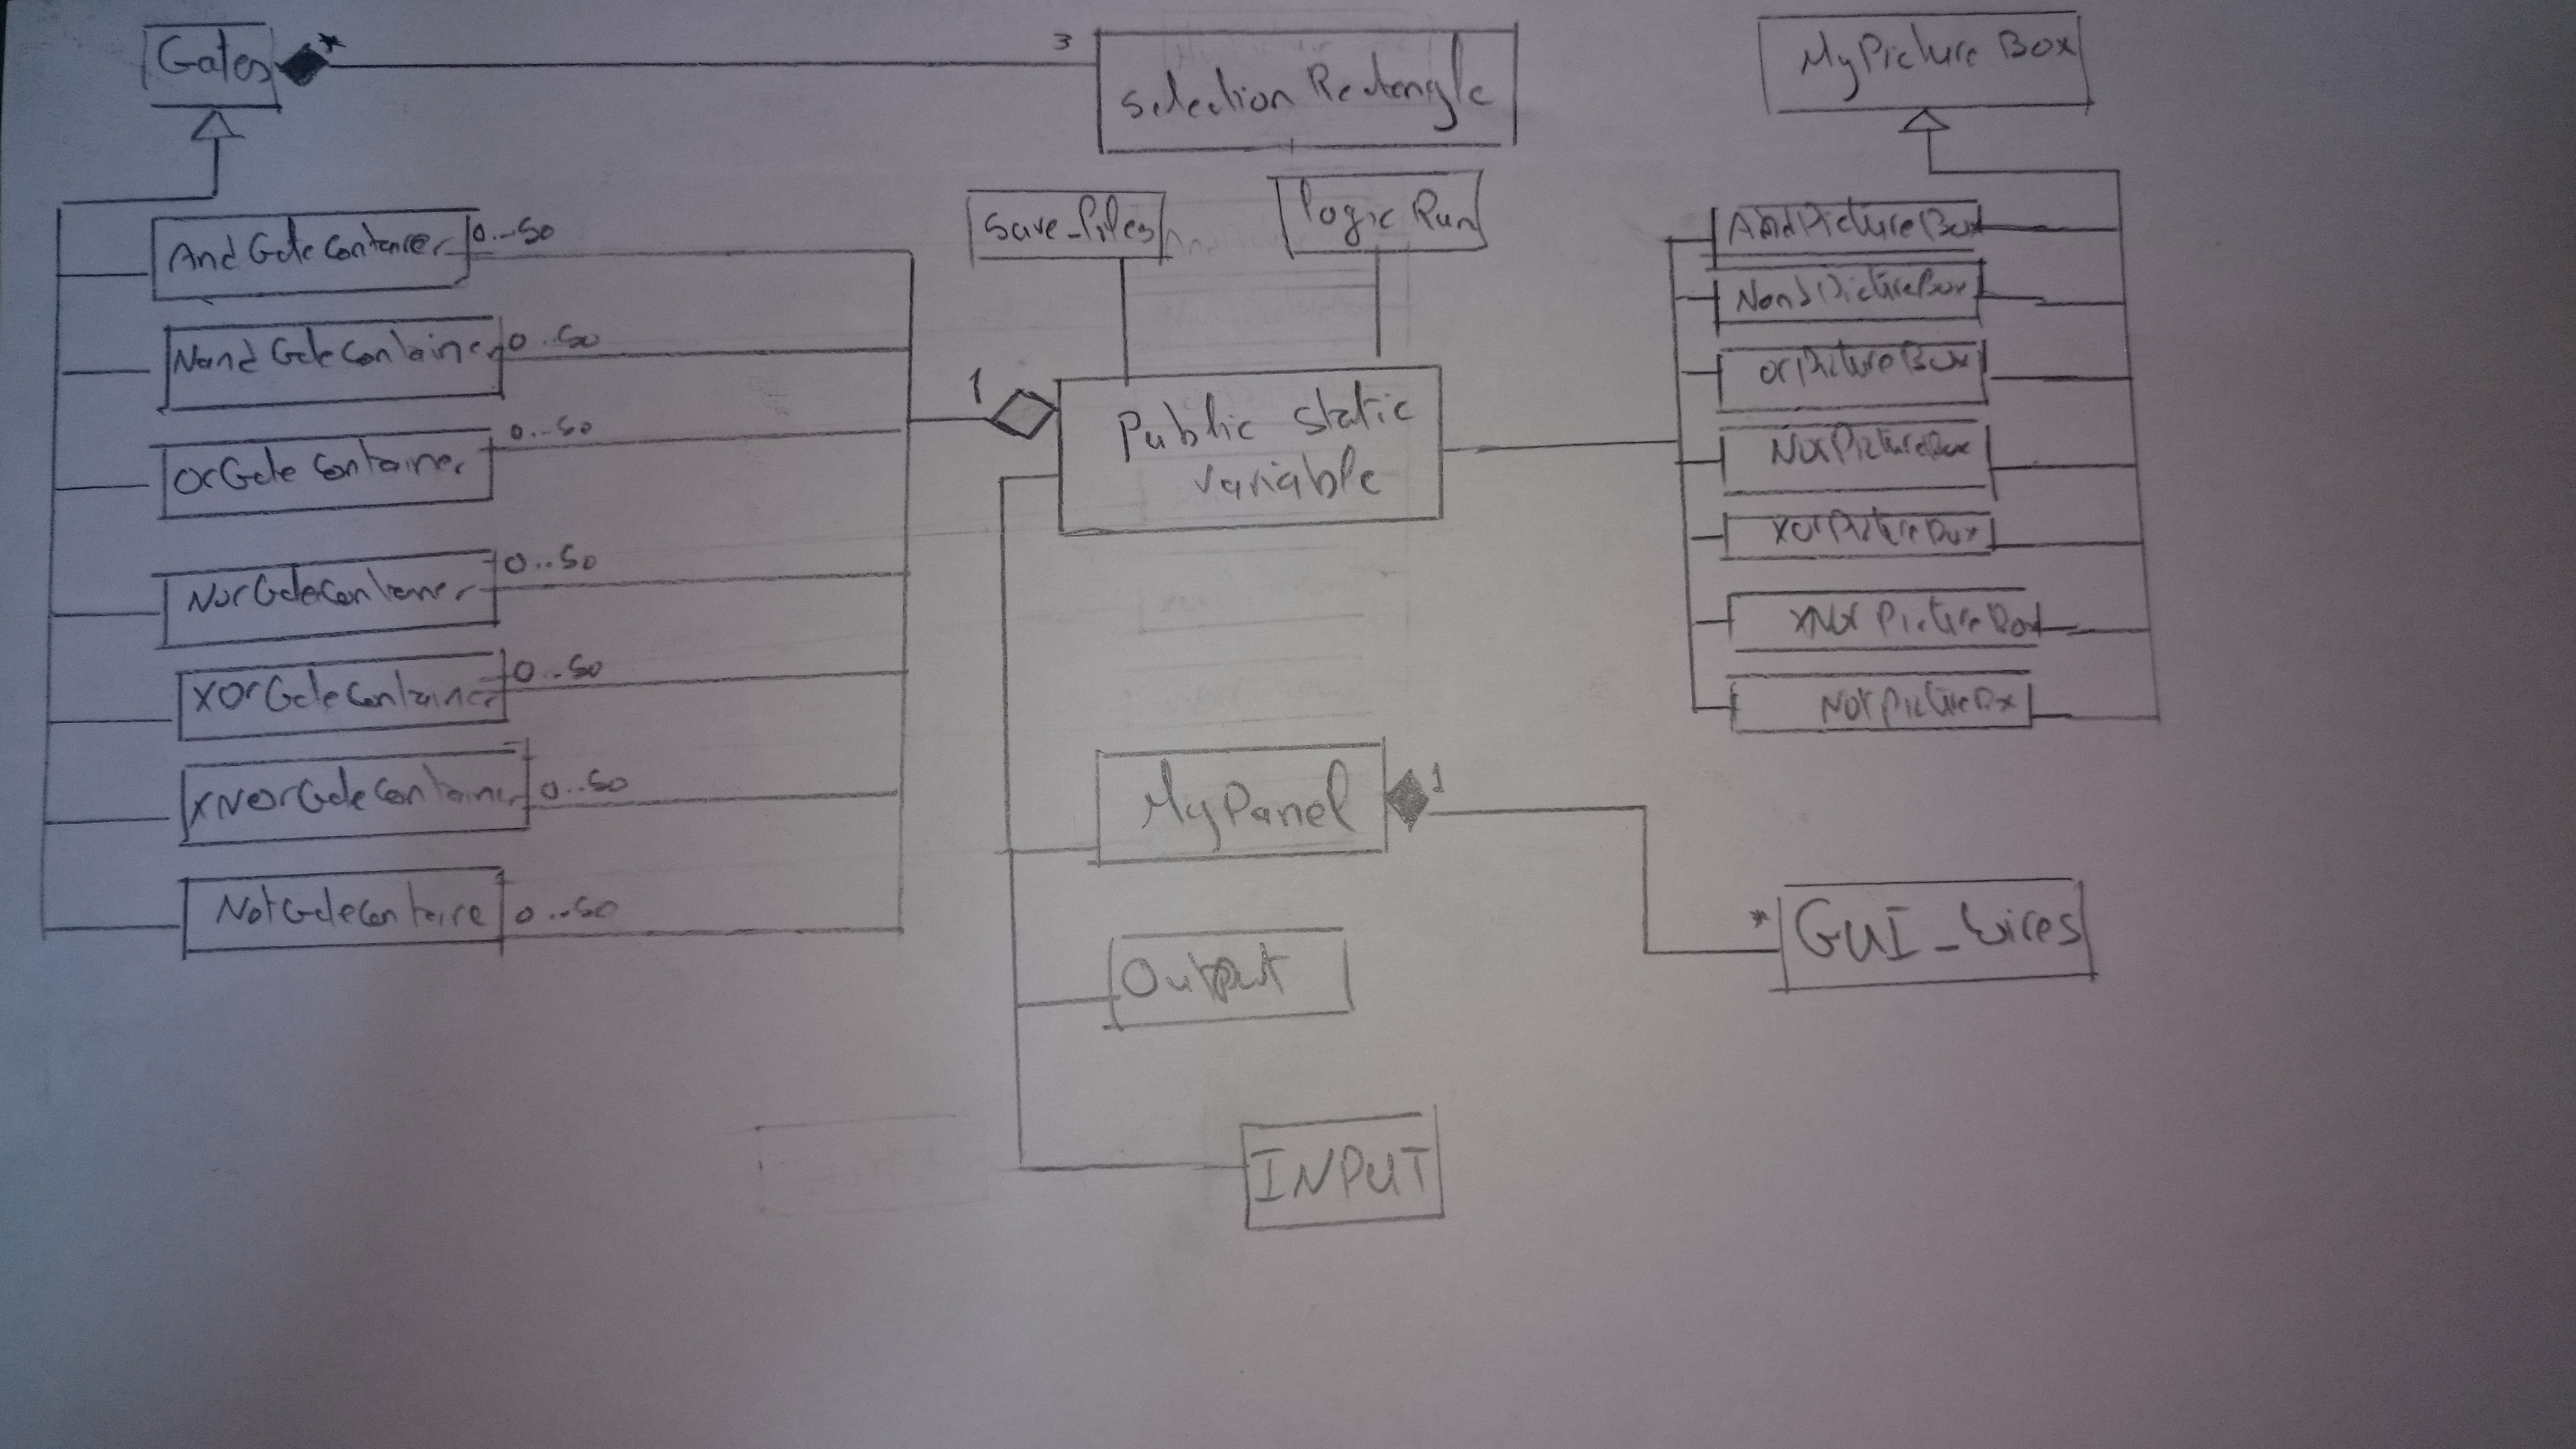 Gates
*
3
Selection Rectengle
MyPicture Box
save_files
logic Run
AndGateContainer
0..50
NandGateContainer
0..50
OrGateContainer
0..50
NorGateContainer
0..50
XOrGateContainer
0..50
XNorGateContainer
0..50
NotGateContaire
0..50
1
Public static
variable
AndPictureBox
NandPictureBox
orPictureBox
NorPictureBox
XorPictureBox
XNorPictureBox
NotPictureBx
MyPanel
1
*
GUI_Wires
Output
INPUT